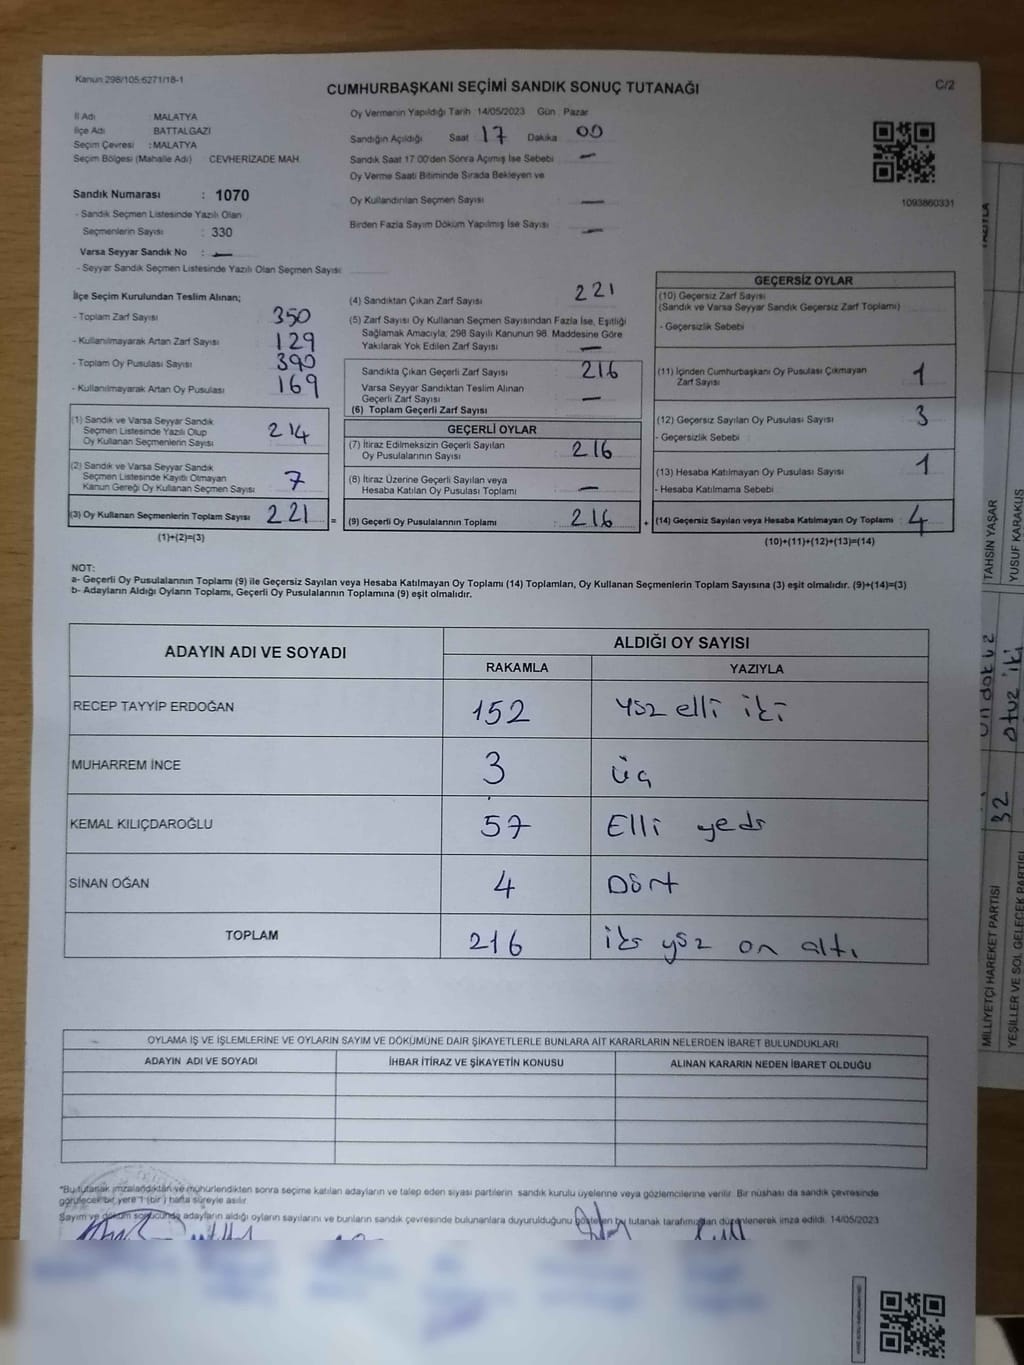 Kanun 298/105:6271/18-1
CUMHURBAŞKANI SEÇİMİ SANDIK SONUÇ TUTANAĞI
C/2
İl Adı : MALATYA
İlçe Adı : BATTALGAZİ
Seçim Çevresi : MALATYA
Seçim Bölgesi (Mahalle Adı) CEVHERİZADE MAH.
Sandık Numarası : 1070
- Sandık Seçmen Listesinde Yazılı Olan
Seçmenlerin Sayısı : 330
Varsa Seyyar Sandık No : —
- Seyyar Sandık Seçmen Listesinde Yazılı Olan Seçmen Sayısı:
Oy Vermenin Yapıldığı Tarih 14/05/2023 Gün : Pazar
Sandığın Açıldığı Saat 17 Dakika 00
Sandık Saat 17.00'den Sonra Açılmış İse Sebebi —
Oy Verme Saati Bitiminde Sırada Bekleyen ve
Oy Kullandırılan Seçmen Sayısı —
Birden Fazla Sayım Döküm Yapılmış İse Sayısı —
1093860331
İlçe Seçim Kurulundan Teslim Alınan;
- Toplam Zarf Sayısı 350
- Kullanılmayarak Artan Zarf Sayısı 129
- Toplam Oy Pusulası Sayısı 390
- Kullanılmayarak Artan Oy Pusulası 169
(1) Sandık ve Varsa Seyyar Sandık
Seçmen Listesinde Yazılı Olup
Oy Kullanan Seçmenlerin Sayısı 214
(2) Sandık ve Varsa Seyyar Sandık
Seçmen Listesinde Kayıtlı Olmayan
Kanun Gereği Oy Kullanan Seçmen Sayısı 7
(3) Oy Kullanan Seçmenlerin Toplam Sayısı 221 =
(1)+(2)=(3)
(4) Sandıktan Çıkan Zarf Sayısı 221
(5) Zarf Sayısı Oy Kullanan Seçmen Sayısından Fazla İse, Eşitliği
Sağlamak Amacıyla; 298 Sayılı Kanunun 98. Maddesine Göre
Yakılarak Yok Edilen Zarf Sayısı —
Sandıkta Çıkan Geçerli Zarf Sayısı 216
Varsa Seyyar Sandıktan Teslim Alınan
Geçerli Zarf Sayısı —
(6) Toplam Geçerli Zarf Sayısı
GEÇERLİ OYLAR
(7) İtiraz Edilmeksizin Geçerli Sayılan
Oy Pusulalarının Sayısı 216
(8) İtiraz Üzerine Geçerli Sayılan veya
Hesaba Katılan Oy Pusulası Toplamı —
(9) Geçerli Oy Pusulalarının Toplamı : 216 +
GEÇERSİZ OYLAR
(10) Geçersiz Zarf Sayısı
(Sandık ve Varsa Seyyar Sandık Geçersiz Zarf Toplamı)
- Geçersizlik Sebebi
(11) İçinden Cumhurbaşkanı Oy Pusulası Çıkmayan
Zarf Sayısı 1
(12) Geçersiz Sayılan Oy Pusulası Sayısı 3
- Geçersizlik Sebebi
(13) Hesaba Katılmayan Oy Pusulası Sayısı 1
- Hesaba Katılmama Sebebi
(14) Geçersiz Sayılan veya Hesaba Katılmayan Oy Toplamı : 4
(10)+(11)+(12)+(13)=(14)
NOT:
a- Geçerli Oy Pusulalarının Toplamı (9) ile Geçersiz Sayılan veya Hesaba Katılmayan Oy Toplamı (14) Toplamları, Oy Kullanan Seçmenlerin Toplam Sayısına (3) eşit olmalıdır. (9)+(14)=(3)
b- Adayların Aldığı Oyların Toplamı, Geçerli Oy Pusulalarının Toplamına (9) eşit olmalıdır.
ADAYIN ADI VE SOYADI
ALDIĞI OY SAYISI
RAKAMLA YAZIYLA
RECEP TAYYİP ERDOĞAN 152 yüz elli iki
MUHARREM İNCE 3 üç
KEMAL KILIÇDAROĞLU 57 Elli yedi
SİNAN OĞAN 4 Dört
TOPLAM 216 iki yüz on altı
OYLAMA İŞ VE İŞLEMLERİNE VE OYLARIN SAYIM VE DÖKÜMÜNE DAİR ŞİKAYETLERLE BUNLARA AİT KARARLARIN NELERDEN İBARET BULUNDUKLARI
ADAYIN ADI VE SOYADI İHBAR İTİRAZ VE ŞİKAYETİN KONUSU ALINAN KARARIN NEDEN İBARET OLDUĞU
*Bu tutanak imzalandıktan ve mühürlendikten sonra seçime katılan adayların ve talep eden siyasi partilerin sandık kurulu üyelerine veya gözlemcilerine verilir. Bir nüshası da sandık çevresinde
görülecek bir yere 1 (bir) hafta süreyle asılır.
Sayım ve döküm sonucunda adayların aldığı oyların sayılarını ve bunların sandık çevresinde bulunanlara duyurulduğunu gösteren bu tutanak tarafımızdan düzenlenerek imza edildi. 14/05/2023
YAZIYLA
TAHSİN YAŞAR
YUSUF KARAKUŞ
on dokuz
otuz iki
32
MİLLİYETÇİ HAREKET PARTİSİ
YEŞİLLER VE SOL GELECEK PARTİSİ